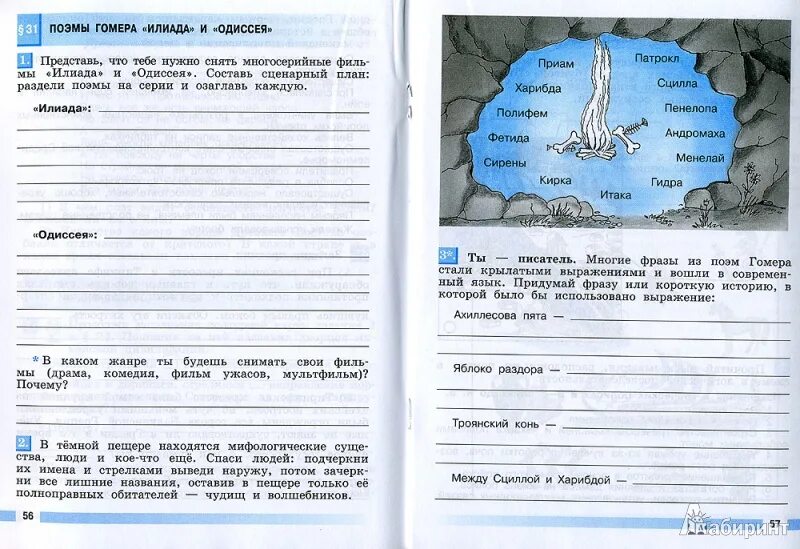 § 31 ПОЭМЫ ГОМЕРА «ИЛИАДА» И «ОДИССЕЯ»
1. Представь, что тебе нужно снять многосерийные филь-
мы «Илиада» и «Одиссея». Составь сценарный план:
раздели поэмы на серии и озаглавь каждую.
«Илиада»:
«Одиссея»:
* В каком жанре ты будешь снимать свои филь-
мы (драма, комедия, фильм ужасов, мультфильм)?
Почему?
2. В тёмной пещере находятся мифологические суще-
ства, люди и кое-что ещё. Спаси людей: подчеркни
их имена и стрелками выведи наружу, потом зачерк-
ни все лишние названия, оставив в пещере только её
полноправных обитателей — чудищ и волшебников.
56
Приам
Патрокл
Харибда
Сцилла
Полифем
Пенелопа
Фетида
Андромаха
Сирены
Менелай
Кирка
Гидра
Итака
3*. Ты — писатель. Многие фразы из поэм Гомера
стали крылатыми выражениями и вошли в современ-
ный язык. Придумай фразу или короткую историю, в
которой было бы использовано выражение:
Ахиллесова пята —
Яблоко раздора —
Троянский конь —
Между Сциллой и Харибдой —
57
Лабиринт